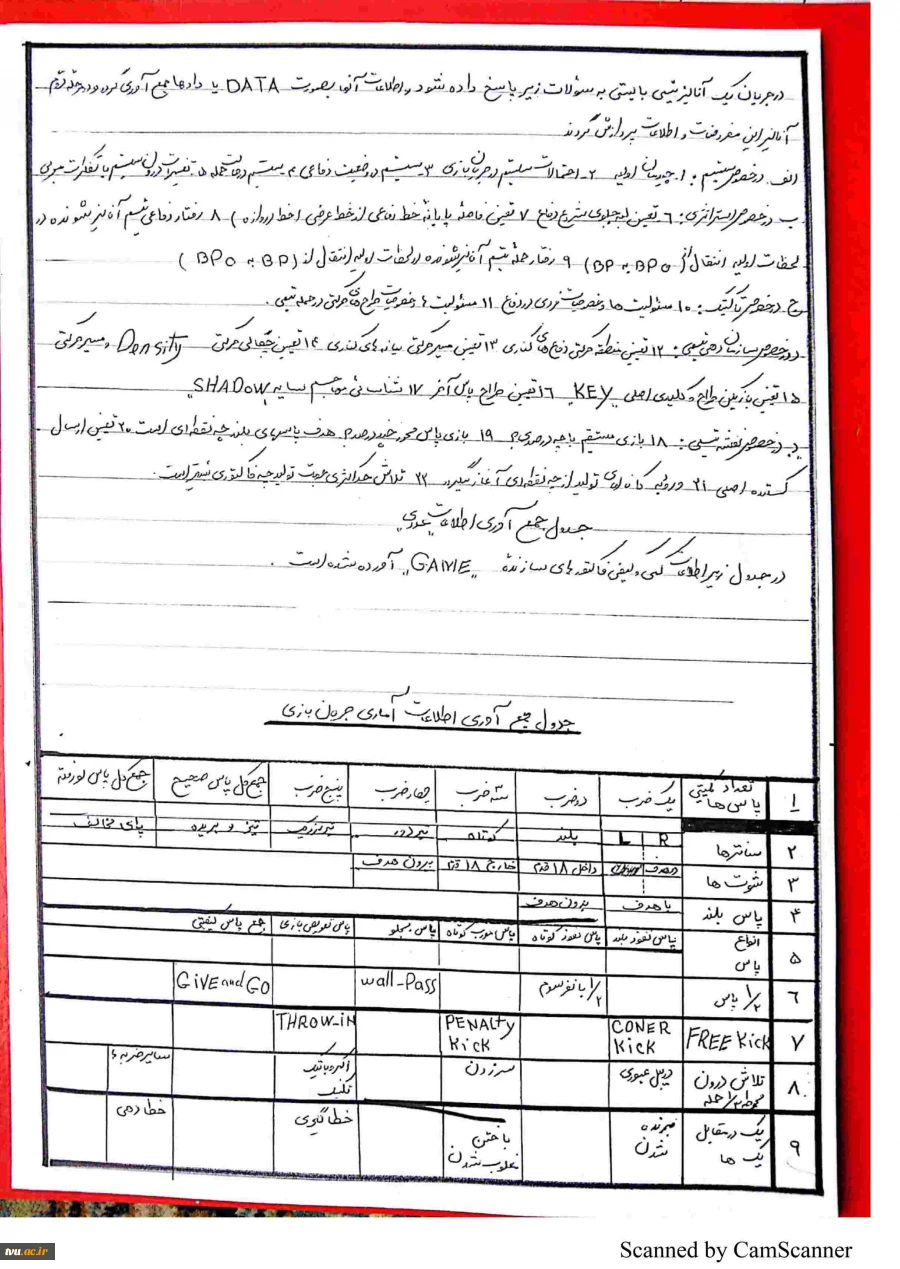 در جریان یک آنالیز تیمی بایستی به سئوالات زیر پاسخ داده شود و اطلاعات آنها بصورت DATA یا دادها جمع آوری گردد و در مرحله دوم
آنالیز این مفروضات و اطلاعات پردازش گردند
الف. در خصوص سیستم: ۱. چیدمان اولیه ۲- احتمالات سیستم در جریان بازی ۳- سیستم در وضعیت دفاعی ۴- سیستم در حالت حمله ۵- تغییرات درون سیستم با تفکرات مربی
ب- در خصوص استراتژی: ۶- تعیین لبه جلوی شروع دفاع ۷- تعیین فاصله پایانه خط دفاعی از خط عرضی (خط دروازه) ۸- رفتار دفاعی تیم آنالیز شونده در
لحظات اولیه انتقال از (BP به BPO) ۹- رفتار حمله تیم آنالیز شونده در لحظات اولیه انتقال از (BP به BPO)
ج- در خصوص تاکتیک: ۱۰- مسئولیت ها و خصوصیات فردی در دفاع ۱۱- مسئولیت و خصوصیات طرح های حرکتی در حمله تیمی.
د- در خصوص سازمان دهی تیمی: ۱۲- تعیین منطقه حرکتی دفاع های کناری ۱۳- تعیین مسیر حرکتی میانه های کناری ۱۴- تعیین چگالی حرکتی Density و مسیر حرکتی
۱۵- تعیین بازیکن طراح و کلیدی اصلی "KEY" ۱۶- تعیین طراح پاس آخر ۱۷- شناسائی مهاجم سایه "SHADOW"
در خصوص نقشه تیمی: ۱۸- بازی مستقیم با چه درصدی؟ ۱۹- بازی پاس محور چند درصد؟ هدف پاسهای بلند چه نقطه ای است ۲۰- تعیین ارسال
کننده اصلی ۲۱- ورودیه کانالهای تولید از چه نقطه ای آغاز میگیرد ۲۲- تلاش حداکثری جهت تولید چه فاکتوری بیشتر است.
جدول جمع آوری اطلاعات
در جدول زیر اطلاعات کمی و کیفی فاکتورهای سازنده "GAME" آورده شده است.
جدول جمع آوری اطلاعات آماری جریان بازی
۱ تعداد کمیتی پاس ها یک ضرب دو ضرب سه ضرب چهار ضرب پنج ضرب جمع کل پاس صحیح جمع کل پاس
۲ سانترها R L بلند کوتاه تیر دور تیر نزدیک تیز و بریده پای مخالف
۳ شوت ها داخل ۱۸ قدم خارج ۱۸ قدم بیرون هدف
۴ پاس بلند با هدف بدون هدف
۵ انواع پاس پاس نفوذ بلند پاس نفوذ کوتاه پاس مورب کوتاه پاس بجلو پاس تعویض بازی جمع پاس کیفیتی
۶ ۱/۲ پاس ۱/۲ با نفر سوم wall-Pass GiVE and GO
۷ FREE Kick CONER Kick PENALTY Kick THROW-iN
۸ تلاش درون محوطه حمله دریبل عبوری سر زدن آکروباتیک تکنیک سایر ضربه
۹ یک در مقابل یک ها برنده شدن باختن مغلوب شدن خطا گیری خطا دهی
tvu.ac.ir
Scanned by CamScanner